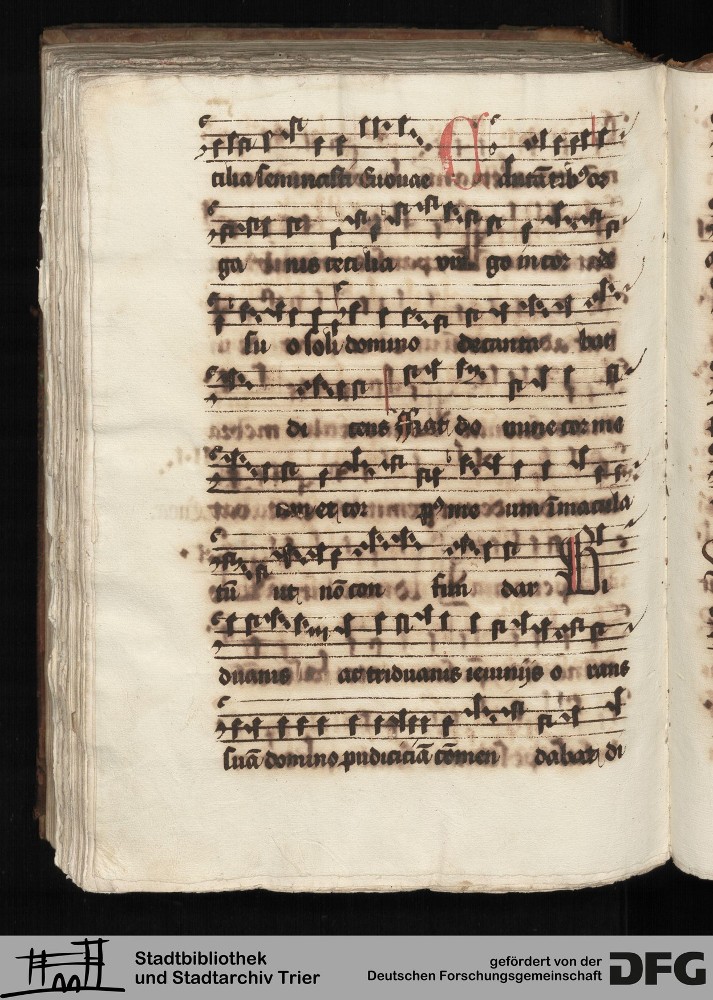 cilia seminasti Euouae Cantatib9 or
ga nis cecilia virgo in cor de
su o soli domino decantabat
di cens Fiat dño mine cor me
um et cor p9 me um īmacula
tū ut nō con fun dar Bi
duanis ac triduanis ieiunijs o rans
suā domino pudiciciā cōmen dabat di
Stadtbibliothek
und Stadtarchiv Trier
gefördert von der
Deutschen Forschungsgemeinschaft
DFG